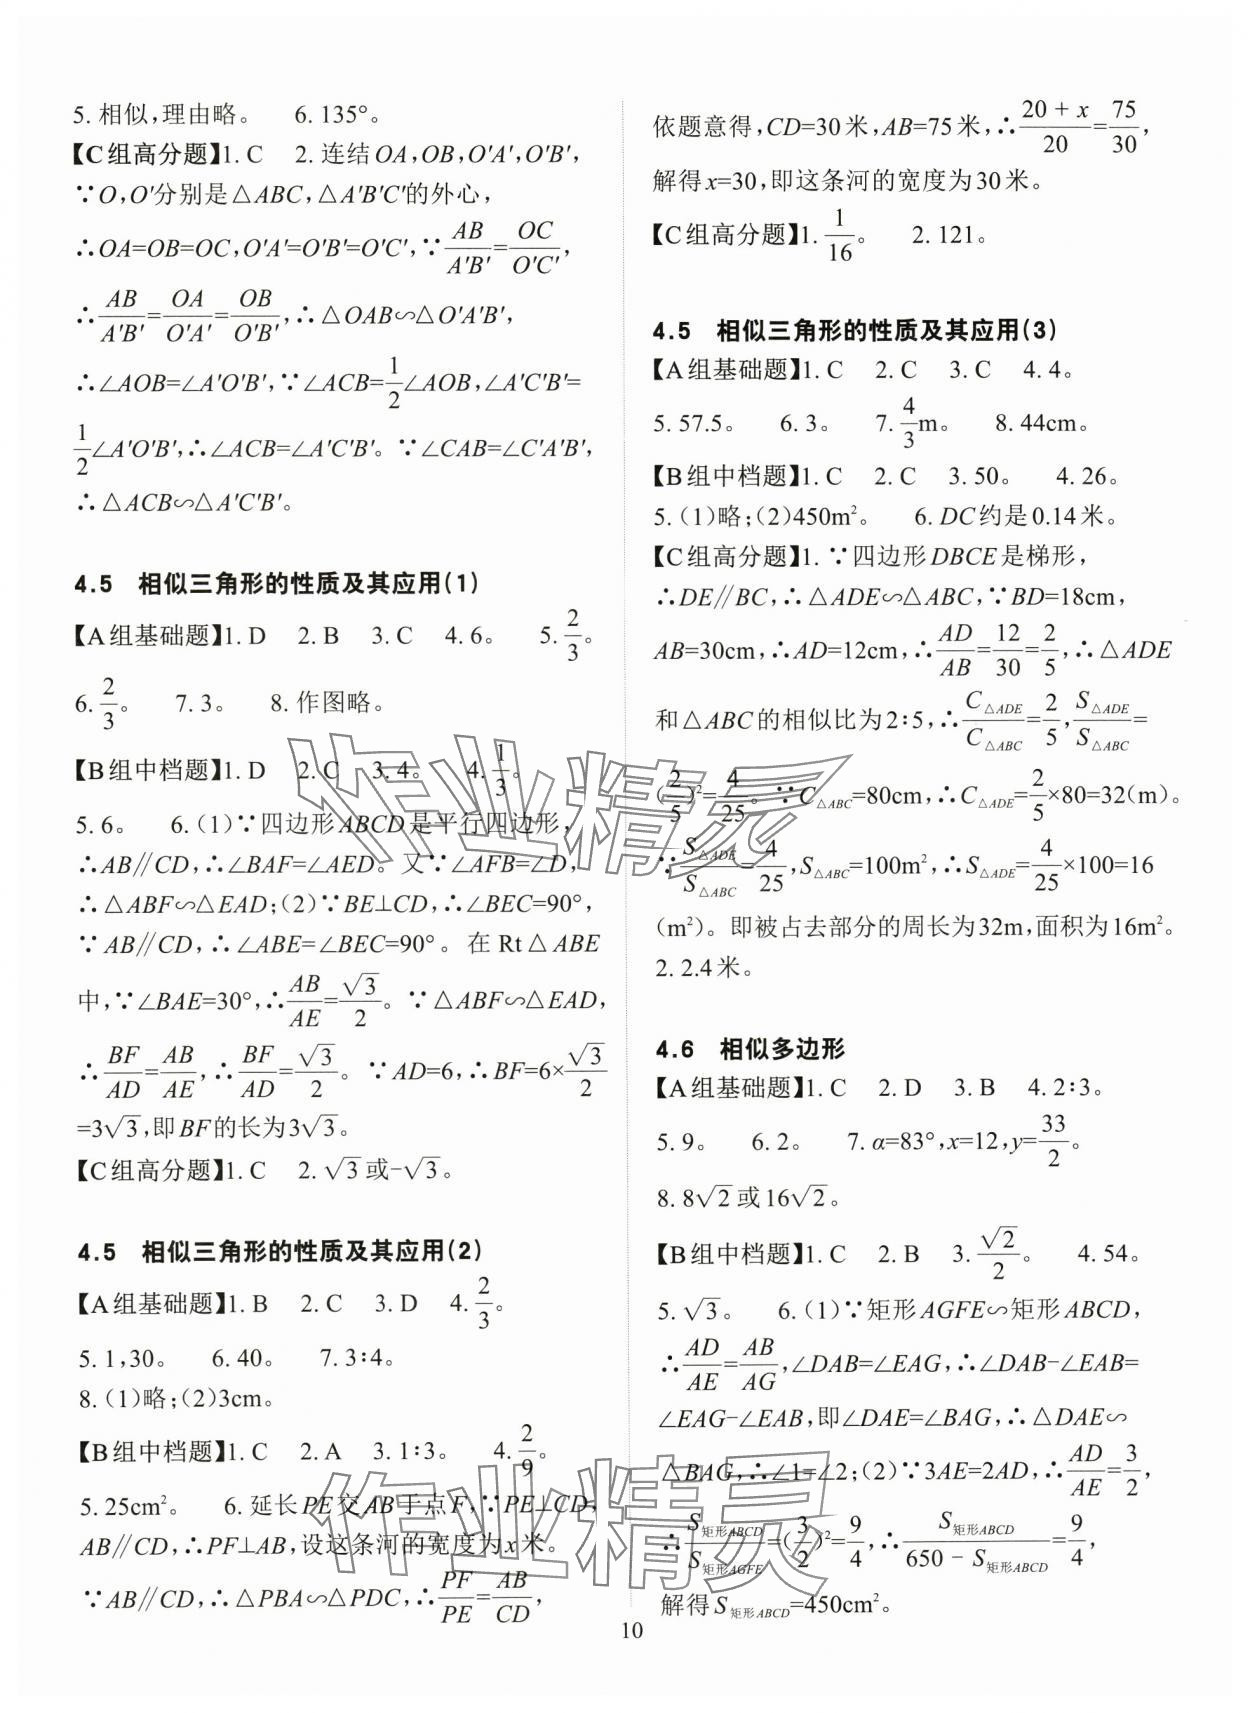 5. 相似,理由略。 6. 135°。
【C组高分题】1. C 2. 连结OA,OB,O'A',O'B',
∵O,O'分别是△ABC,△A'B'C'的外心,
∴OA=OB=OC,O'A'=O'B'=O'C',∵AB/A'B'=OC/O'C',
∴AB/A'B'=OA/O'A'=OB/O'B',∴△OAB∽△O'A'B',
∴∠AOB=∠A'O'B',∵∠ACB=1/2∠AOB,∠A'C'B'=
1/2∠A'O'B',∴∠ACB=∠A'C'B'。∵∠CAB=∠C'A'B',
∴△ACB∽△A'C'B'。
4.5 相似三角形的性质及其应用(1)
【A组基础题】1. D 2. B 3. C 4. 6。 5. 2/3。
6. 2/3。 7. 3。 8. 作图略。
【B组中档题】1. D 2. C 3. 4。 4. 1/3。
5. 6。 6. (1)∵四边形ABCD是平行四边形,
∴AB∥CD,∴∠BAF=∠AED。又∵∠AFB=∠D,
∴△ABF∽△EAD;(2)∵BE⊥CD,∴∠BEC=90°,
∵AB∥CD,∴∠ABE=∠BEC=90°。在Rt△ABE
中,∵∠BAE=30°,∴AB/AE=√3/2。∵△ABF∽△EAD,
∴BF/AD=AB/AE,∴BF/AD=√3/2。∵AD=6,∴BF=6×√3/2
=3√3,即BF的长为3√3。
【C组高分题】1. C 2. √3或-√3。
4.5 相似三角形的性质及其应用(2)
【A组基础题】1. B 2. C 3. D 4. 2/3。
5. 1,30。 6. 40。 7. 3∶4。
8. (1)略;(2)3cm。
【B组中档题】1. C 2. A 3. 1∶3。 4. 2/9。
5. 25cm²。 6. 延长PE交AB于点F,∵PE⊥CD,
AB∥CD,∴PF⊥AB,设这条河的宽度为x米。
∵AB∥CD,∴△PBA∽△PDC,∴PF/PE=AB/CD,
依题意得,CD=30米,AB=75米,∴(20+x)/20=75/30,
解得x=30,即这条河的宽度为30米。
【C组高分题】1. 1/16。 2. 121。
4.5 相似三角形的性质及其应用(3)
【A组基础题】1. C 2. C 3. C 4. 4。
5. 57.5。 6. 3。 7. 4/3m。 8. 44cm。
【B组中档题】1. C 2. C 3. 50。 4. 26。
5. (1)略;(2)450m²。 6. DC约是0.14米。
【C组高分题】1. ∵四边形DBCE是梯形,
∴DE∥BC,∴△ADE∽△ABC,∵BD=18cm,
AB=30cm,∴AD=12cm,∴AD/AB=12/30=2/5,∴△ADE
和△ABC的相似比为2∶5,∴C△ADE/C△ABC=2/5,S△ADE/S△ABC=
(2/5)²=4/25。∵C△ABC=80cm,∴C△ADE=2/5×80=32(m)。
∵S△ADE/S△ABC=4/25,S△ABC=100m²,∴S△ADE=4/25×100=16
(m²)。即被占去部分的周长为32m,面积为16m²。
2. 2.4米。
4.6 相似多边形
【A组基础题】1. C 2. D 3. B 4. 2∶3。
5. 9。 6. 2。 7. α=83°,x=12,y=33/2。
8. 8√2或16√2。
【B组中档题】1. C 2. B 3. √2/2。 4. 54。
5. √3。 6. (1)∵矩形AGFE∽矩形ABCD,
∴AD/AE=AB/AG,∠DAB=∠EAG,∴∠DAB-∠EAB=
∠EAG-∠EAB,即∠DAE=∠BAG,∴△DAE∽
△BAG,∴∠1=∠2;(2)∵3AE=2AD,∴AD/AE=3/2,
∴S矩形ABCD/S矩形AGFE=(3/2)²=9/4,∴S矩形ABCD/(650-S矩形ABCD)=9/4,
解得S矩形ABCD=450cm²。
10
作业精灵
作业精灵